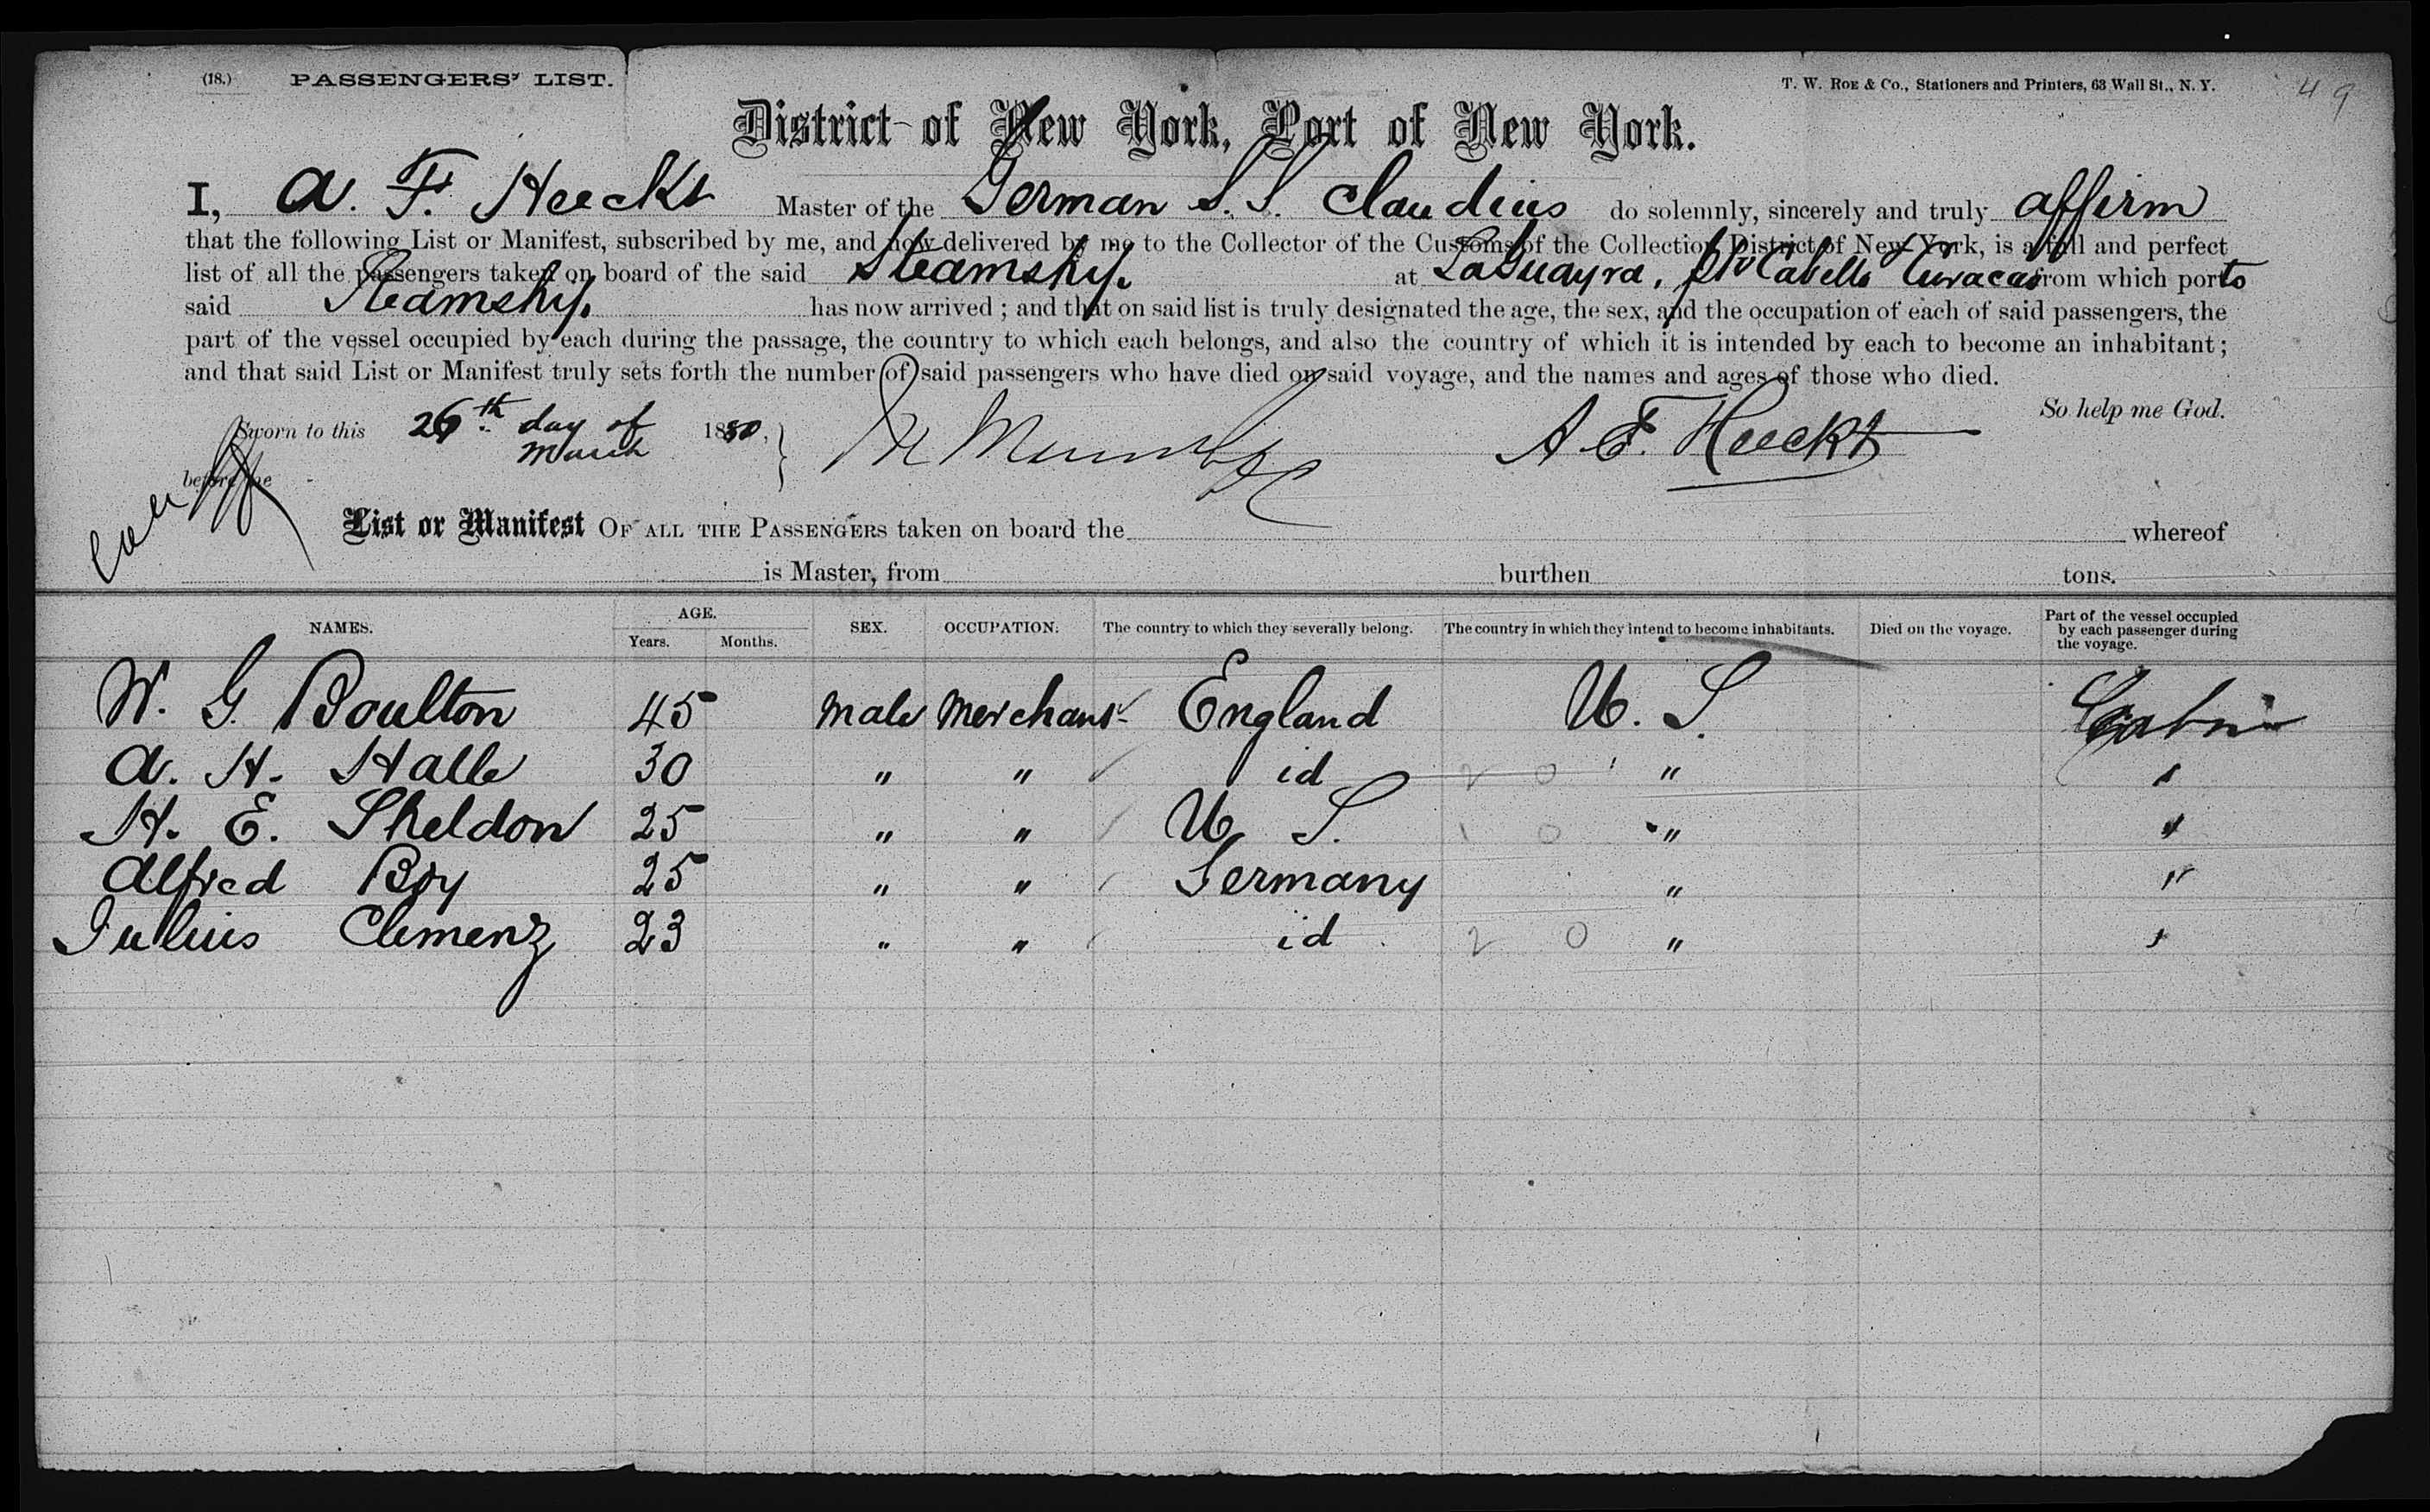 (18.) PASSENGERS' LIST.
T. W. ROE & Co., Stationers and Printers, 63 Wall St., N. Y.
49
District of New York, Port of New York.
I, A. F. Heeckt Master of the German S. S. Claudius do solemnly, sincerely and truly affirm
that the following List or Manifest, subscribed by me, and now delivered by me to the Collector of the Customs of the Collection District of New York, is a full and perfect
list of all the passengers taken on board of the said Steamship at LaGuayra, Pto Cabello Curacao from which ports
said Steamship has now arrived ; and that on said list is truly designated the age, the sex, and the occupation of each of said passengers, the
part of the vessel occupied by each during the passage, the country to which each belongs, and also the country of which it is intended by each to become an inhabitant ;
and that said List or Manifest truly sets forth the number of said passengers who have died on said voyage, and the names and ages of those who died.
So help me God.
Sworn to this 26th day of March 1880,
A. F. Heeckt
before me
List or Manifest OF ALL THE PASSENGERS taken on board the whereof
is Master, from burthen tons.
NAMES. AGE. Years. Months. SEX. OCCUPATION. The country to which they severally belong. The country in which they intend to become inhabitants. Died on the voyage. Part of the vessel occupied by each passenger during the voyage.
W. G. Boulton 45 male merchant England U. S. Cabin
A. H. Halle 30 " " id 2 0 " "
H. E. Sheldon 25 " " U. S. 1 0 " "
Alfred Boy 25 " " Germany " "
Julius Clemenz 23 " " id 2 0 " "